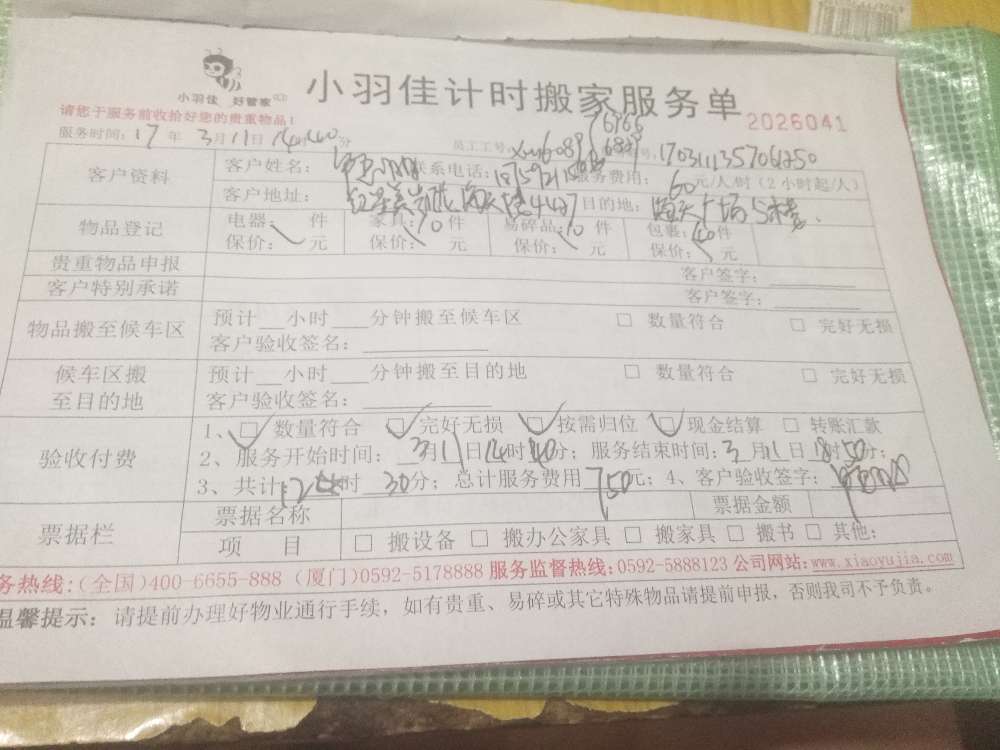 小羽佳 好管家
小羽佳计时搬家服务单
2026041
请您于服务前收拾好您的贵重物品!
服务时间: 17 年 3月11日 14时40分 员工工号: 单号: 170311135706250
客户资料 客户姓名: 联系电话: 服务费用: 60 元/人/时(2小时起/人)
客户地址: 目的地:
物品登记 电器: 件 家具: 10 件 易碎品: 10 件 包裹: 40 件
保价: 元 保价: 元 保价: 元 保价: 元
贵重物品申报 客户签字:
客户特别承诺 客户签字:
物品搬至候车区 预计__小时___分钟搬至候车区 □ 数量符合 □ 完好无损
客户验收签名:
候车区搬至目的地 预计__小时___分钟搬至目的地 □ 数量符合 □ 完好无损
客户验收签名:
验收付费 1、☑ 数量符合 ☑ 完好无损 ☑ 按需归位 ☑ 现金结算 □ 转账汇款
2、服务开始时间: 3月11日14时40分; 服务结束时间: 3月11日18时50分;
3、共计12小时30分; 总计服务费用750元; 4、客户验收签字:
票据栏 票据名称 票据金额
项 目 □ 搬设备 □ 搬办公家具 □ 搬家具 □ 搬书 □ 其他:
务热线: (全国)400-6655-888 (厦门)0592-5178888 服务监督热线: 0592-5888123 公司网站: www.xiaoyujia.com
温馨提示: 请提前办理好物业通行手续, 如有贵重、易碎或其它特殊物品请提前申报, 否则我司不予负责。